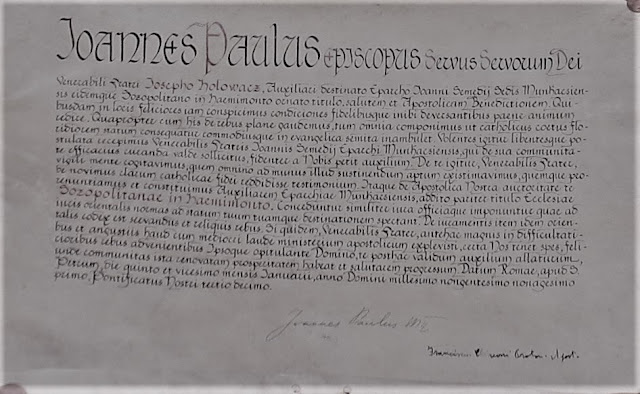 Ioannes Paulus Episcopus Servus Servorum Dei
Venerabili Fratri Iosepho Holowacz, Auxiliari destinato Eparcho Ioanni Semedij Sedis Munkacsien-
sis eidemque Sozopolitano in Haemimonto ornato titulo, salutem et Apostolicam Benedictionem. Qui-
busdam in locis feliciores iam conspicimus condiciones fidelibus inibi deversantibus parere animum
cedice. Quapropter cum his de rebus plane gaudemus, tum omnia componimus ut catholicus coetus flo-
ridiorem statum consequatur commodiusque in evangelica semita inambulet. Volentes igitur libentesque po-
stulata recepimus Venerabilis Fratris Ioannis Semedij Eparchi Munkacsiensis, qui de sua communita-
te efficacius curanda valde sollicitus, fidenter a Nobis petit auxilium. De te igitur, Venerabilis Frater,
vigili mente cogitavimus, quem omnino ad munus illud sustinendum aptum existimavimus, quemque pro-
be novimus clarum catholicae fidei reddidisse testimonium. Itaque de Apostolica Nostra auctoritate te
renuntiamus et constituimus Auxiliarem Eparchiae Munkacsiensis, addito pariter titulo Ecclesiae
Sozopolitanae in Haemimonto. Conceduntur similiter iura officiaque imponuntur quae ad
iuris orientalis normas ad statum tuum tuamque destinationem spectant. De iuramentis item orien-
talis codex est servandus et reliquis rebus. Si quidem, Venerabilis Frater, antehac magnis in difficultati-
bus et angustiis haud cum mediocri laude ministerium apostolicum explevisti, certa Nos tenet spes, feli-
cioribus rebus advenientibus Ipsoque opitulante Domino, te posthac validum auxilium allaturum,
unde communitas ista renovatam prosperitatem habeat et salutarem progressum. Datum Romae, apud S.
Petrum, die quinto et vicesimo mensis Ianuarii, anno Domini millesimo nongentesimo nonagesimo
primo, Pontificatus Nostri tertio decimo.
Joannes Paulus